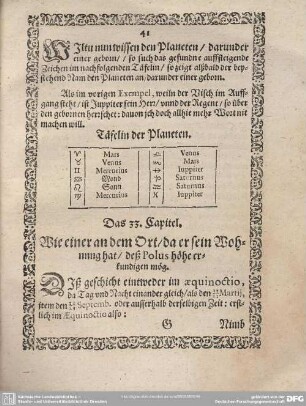 41
WIltu nun wissen den Planeten / darunder
einer geborn / so such das gefundne auffsteigende
Zeichen im nachfolgenden Täfelin / so zeigt alßbald der bey-
stehend Nam den Planeten an / darunder einer geborn.
Als im vorigen Exempel, weiln der Visch im Auff-
gang steht / ist Juppiter sein Herr / vnnd der Regent / so über
den gebornen herrschet: dauon ich doch allhie mehr Wort nit
machen will.
Täfelin der Planeten.
♈ Mars ♎ Venus
♉ Venus ♏ Mars
♊ Mercurius ♐ Juppiter
♋ Mond ♑ Saturnus
♌ Sonn ♒ Saturnus
♍ Mercurius ♓ Juppiter
Das 33. Capitel.
Wie einer an dem Ort / da er sein Woh-
nung hat / deß Polus höhe er-
kundigen mög.
DIß geschicht eintweder im æquinoctio,
da Tag vnd Nacht einander gleich / als den Martij,
item den Septemb. oder ausserhalb derselbigen Zeit: erst-
lich im Æquinoctio also:
G Nimb